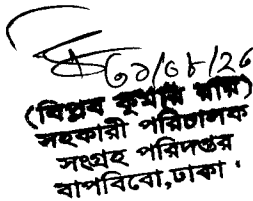 ৩১/০৮/২০
(বিপ্লব কুমার রায়)
সহকারী পরিচালক
সংগ্রহ পরিদপ্তর
বাপবিবো,ঢাকা।